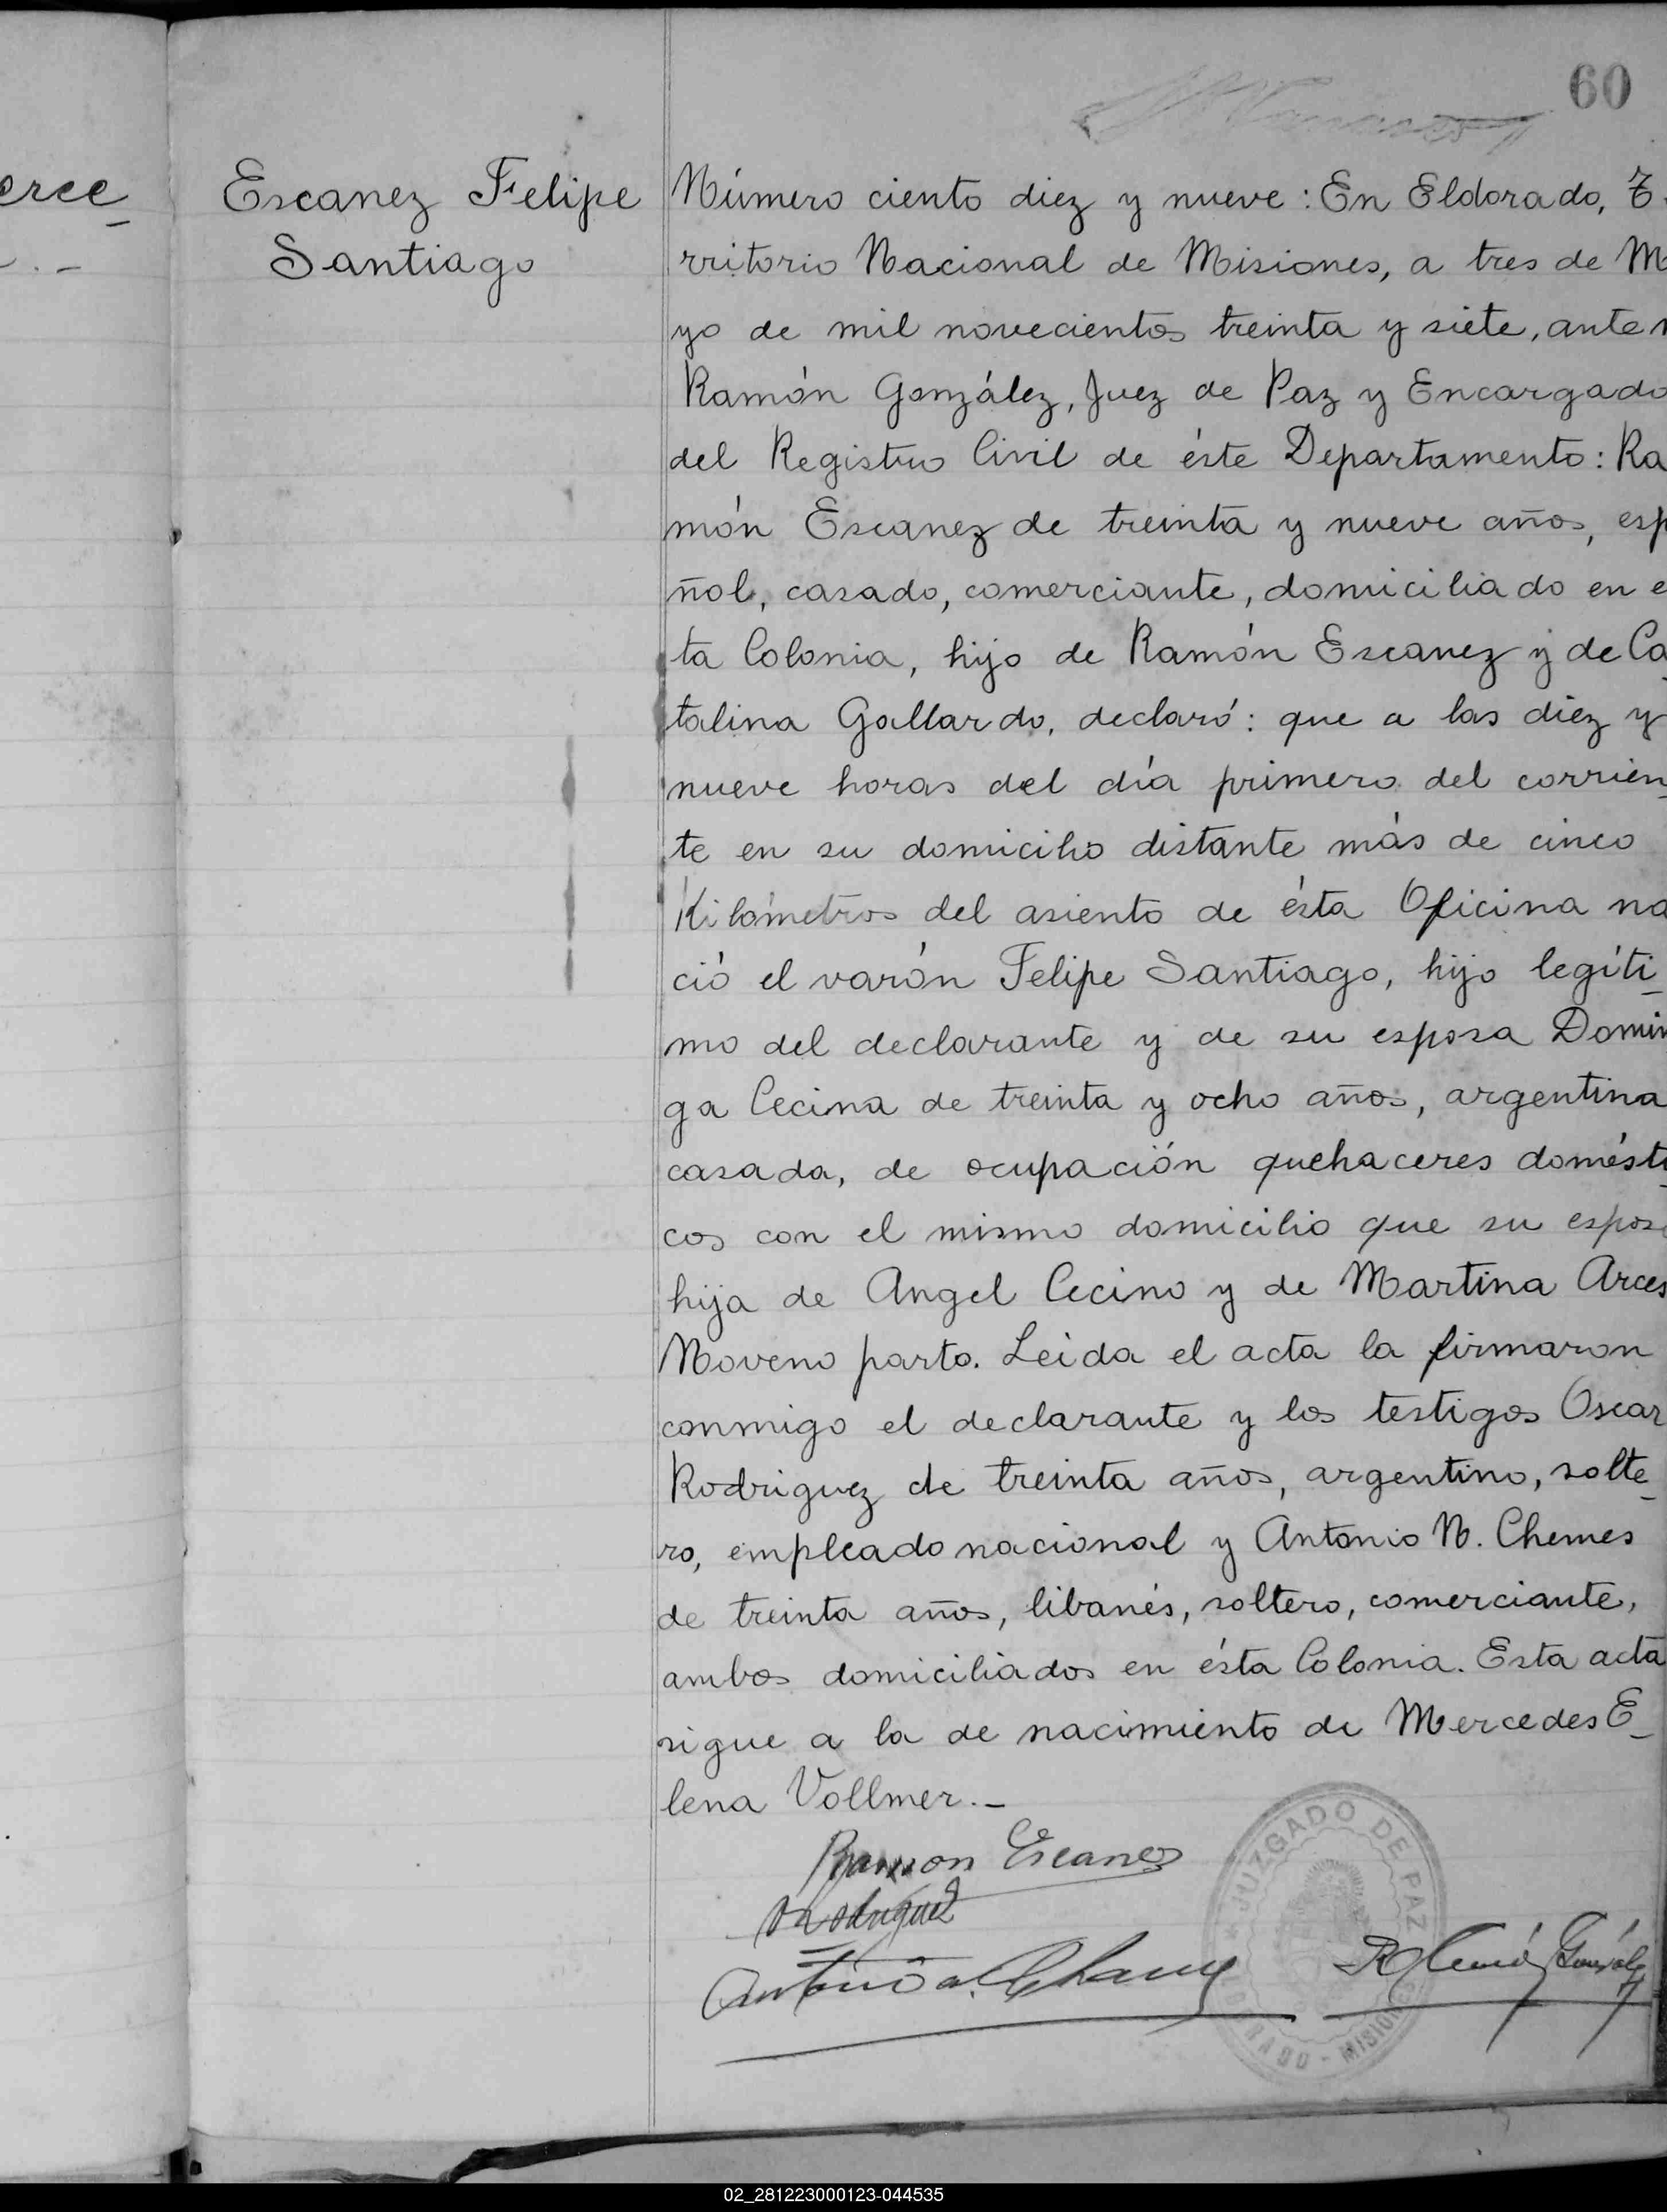 60
erce
Escanez Felipe
Santiago
Número ciento diez y nueve: En Eldorado, T
rritorio Nacional de Misiones, a tres de M
yo de mil novecientos treinta y siete, ante
Ramón González, Juez de Paz y Encargado
del Registro Civil de éste Departamento: Ra
món Escanez de treinta y nueve años, esp
ñol, casado, comerciante, domiciliado en e
ta Colonia, hijo de Ramón Escanez y de Ca
talina Gallardo, declaró: que a las diez y
nueve horas del día primero del corrien_
te en su domicilio distante más de cinco
Kilómetros del asiento de ésta Oficina na
ció el varón Felipe Santiago, hijo legíti_
mo del declarante y de su esposa Domin
ga Cecina de treinta y ocho años, argentina
casada, de ocupación quehaceres domésti_
cos con el mismo domicilio que su espos
hija de Angel Cecino y de Martina Arces
Noveno parto. Leida el acta la firmaron
conmigo el declarante y los testigos Oscar
Rodriguez de treinta años, argentino, solte_
ro, empleado nacional y Antonio N. Chemes
de treinta años, libanés, soltero, comerciante,
ambos domiciliados en ésta Colonia. Esta acta
sigue a la de nacimiento de Mercedes E_
lena Vollmer._
Ramon Escanez
Rodriguez
Antonio
JUZGADO DE PAZ
DORADO - MISIONES
02_281223000123-044535